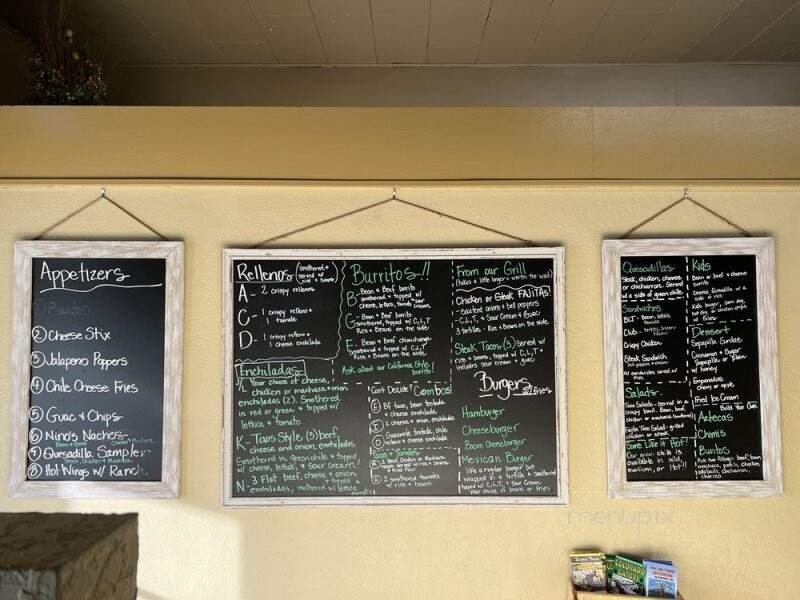 Appetizers
② Cheese Stix
③ Jalapeno Poppers
④ Chile Cheese Fries
⑤ Guac & Chips
⑥ Nino's Nachos
⑦ Quesadilla Sampler
Steak, Chicken & Machaca
⑧ Hot Wings w/ Ranch
Rellenos (Smothered & served w/ rice & beans)
A- 2 crispy rellenos
C- 1 crispy relleno & 1 tamale
D- 1 crispy relleno & 1 cheese enchilada
Enchiladas
L Your choice of cheese,
chicken or machaca & onion
enchiladas (2). Smothered
in red or green & topped w/
lettuce & tomato.
K- Taos Style (3) beef,
cheese and onion enchiladas.
Smothered in green chile & topped
w/ cheese, lettuce, & sour cream!
N- 3 Flat beef, cheese & onion
enchiladas, smothered w/ lettuce
Burritos-!!
B- Bean & Beef burrito
smothered & topped w/
cheese, lettuce, tomato, sour cream
G- Bean & Beef burrito
Smothered, topped w/ C, L, T
Rice & Beans on the side
E- Bean & Beef chimichanga
Smothered, topped w/ C, L, T
Rice & Beans on the side
Ask about our California Style!
burrito!
Can't Decide? Combos!
2 cheese enchiladas
2 cheese and onion enchiladas
Guacamole tostada
2 smothered tamales
w/ rice & beans
From our Grill
(takes a little longer & worth the wait)
Chicken or Steak FAJITAS!
- Sauteed onions & bell peppers
- C, L, T, & Sour Cream & Guac
3 tortillas - Rice & Beans on the side
Steak Tacos (3) Served w/
rice & beans, topped w/ C, L, T &
includes sour cream & guac!
Burgers w/ Fries
Hamburger
Cheeseburger
Bacon Cheeseburger
Mexican Burger
Like a regular burger but
wrapped in a tortilla & smothered
topped w/ C, L, T, & Sour Cream
Your choice of beans or fries
Quesadillas
Steak, chicken, cheese
or chicharron. Served
w/ a side of green chile
Sandwiches
BLT - Bacon, lettuce, tomato
Club
Crispy Chicken
Steak Sandwich
Salads
Taco Salad - Served in a
crispy bowl. Bean, beef,
chicken or machaca
Fajita Taco Salad - grilled
chicken or steak
Some Like it Hot!
Our green chile is
available in mild,
medium, or Hot!!
Kids
Bean & beef & cheese
burrito
Cheese Quesadilla w/ a
side of rice
Dessert
Sopapilla Sundae
Cinnamon & Sugar
Sopapillas
w/ honey
Empanadas
Cherry or apple
Fried Ice Cream
Build Your Own
Aztecas
Chimis
Burritos
menupix
COLORADO